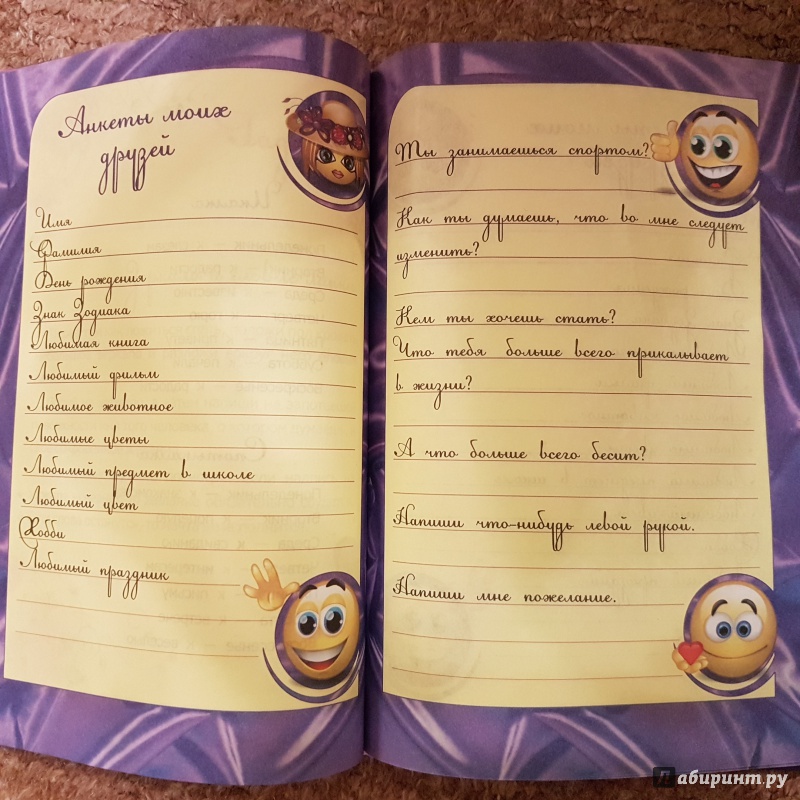 Анкеты моих
друзей
Имя
Фамилия
День рождения
Знак Зодиака
Любимая книга
Любимый фильм
Любимое животное
Любимые цветы
Любимый предмет в школе
Любимый цвет
Хобби
Любимый праздник
Ты занимаешься спортом?
Как ты думаешь, что во мне следует
изменить?
Кем ты хочешь стать?
Что тебя больше всего прикалывает
в жизни?
А что больше всего бесит?
Напиши что-нибудь левой рукой.
Напиши мне пожелание.
Лабиринт.ру